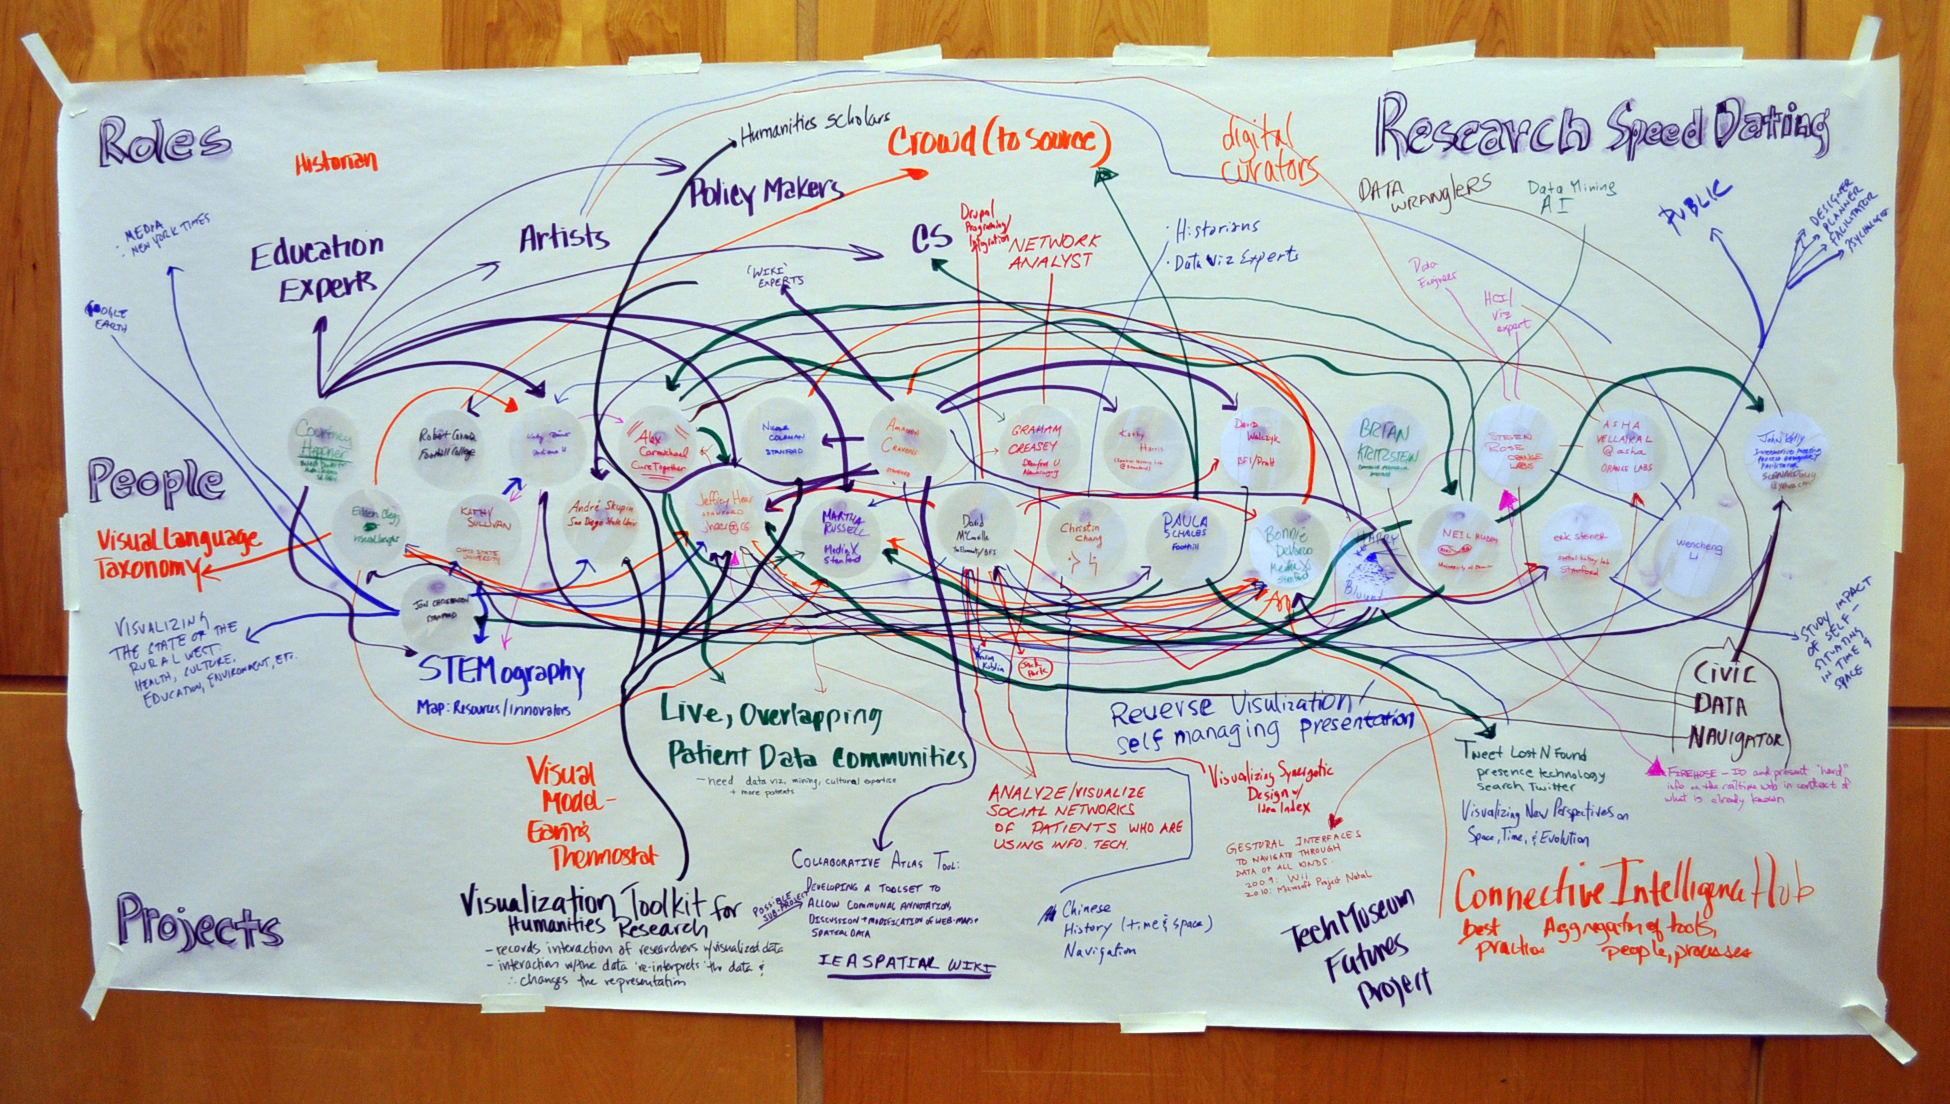 Roles
Historian
Humanities scholars
Crowd (to source)
digital
curators
Research Speed Dating
MEDIA
NEW YORK TIMES
EARTH
Education
Experts
Artists
Policy Makers
CS
Drupal
NETWORK
ANALYST
'WIKI'
EXPERTS
· Historians
· Data Viz Experts
DATA
WRANGLERS
Data Mining
AI
Data
Engineer
HCI/
Viz
expert
PUBLIC
DESIGNER
PLANNER
FACILITATOR
People
Courtney
Robert
Foothill College
Alex
Carmichael
CureTogether
Nicole
COLEMAN
STANFORD
GRAHAM
CREASEY
Stanford U
Kathy
Harris
David
BFI/Pratt
BRIAN
STEVEN
ROSE
ORANGE
LABS
ASHA
@asha
ORANGE LABS
John Kelly
Eileen Clegg
Visual Insight
KATHY
SULLIVAN
OHIO STATE
UNIVERSITY
André Skupin
San Diego State Univ
Jeffrey Heer
STANFORD
MARTHA
RUSSELL
Media X
Stanford
David
Christin
Chang
PAULA
Foothill
Bonnie
DeVarco
Media X
Stanford
NEIL
eric steiner
Stanford
Wencheng
Li
JON CHRISTENSEN
STANFORD
Visual Language
Taxonomy
VISUALIZING
THE STATE OF THE
RURAL WEST.
HEALTH, CULTURE,
EDUCATION, ENVIRONMENT, ETC.
STEMography
Map: Resources/innovators
Live, Overlapping
Patient Data Communities
- need data viz, mining, cultural expertise
+ more patients
Reverse Visulization/
self managing presentation
STUDY IMPACT
OF SELF -
SITUATING
IN TIME &
SPACE
CIVIC
DATA
NAVIGATOR
Visual
Model-
Thermostat
ANALYZE/VISUALIZE
SOCIAL NETWORKS
OF PATIENTS WHO ARE
USING INFO. TECH.
Visualizing Synergetic
Design w/
Idea Index
Tweet Lost N Found
presence technology
search Twitter
Visualizing New Perspectives on
Space, Time, & Evolution
FIREHOSE - ID and present "hard"
info in the realtime web in context of
what is already known
GESTURAL INTERFACES
TO NAVIGATE THROUGH
DATA OF ALL KINDS.
2009: Wii
2010: Microsoft Project Natal
Projects
Visualization Toolkit for
Humanities Research
- records interaction of researchers w/visualized data
- interaction w/the data re-interprets the data &
∴ changes the representation
POSSIBLE
SUB-PROJECT
COLLABORATIVE ATLAS TOOL:
DEVELOPING A TOOLSET TO
ALLOW COMMUNAL ANNOTATION,
DISCUSSION + MODIFICATION OF WEB-MAP +
SPATIAL DATA
IEA SPATIAL WIKI
Chinese
History (time & space)
Navigation
Tech Museum
Futures
Project
Connective Intelligence Hub
best
practices
Aggregation of tools,
people, processes